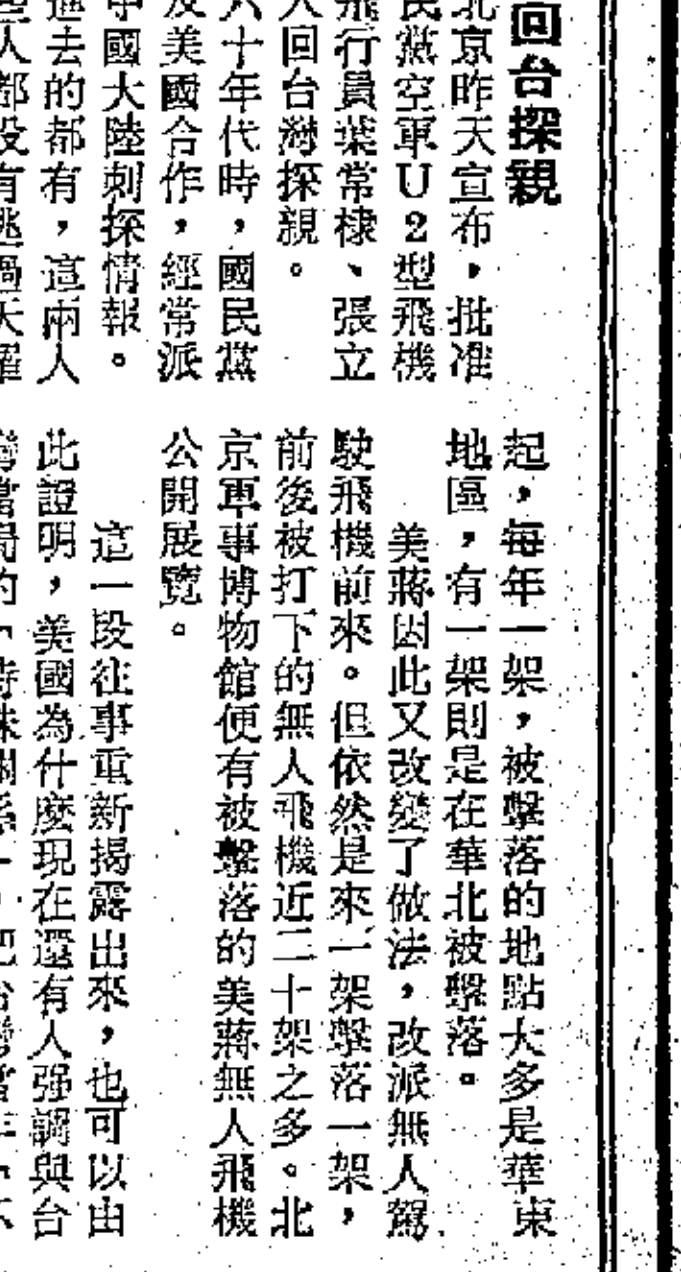 回台探親
北京昨天宣布，批准
民黨空軍U2型飛機
飛行員葉常棣、張立
人回台灣探親。
六十年代時，國民黨
及美國合作，經常派
中國大陸刺探情報。
進去的都有，這兩人
起，每年一架，被擊落的地點大多是華東
地區，有一架則是在華北被擊落。
美蔣因此又改變了做法，改派無人駕
駛飛機前來。但依然是來一架擊落一架，
前後被打下的無人飛機近二十架之多。北
京軍事博物館便有被擊落的美蔣無人飛機
公開展覽。
這一段往事重新揭露出來，也可以由
此證明，美國為什麽現在還有人强調與台